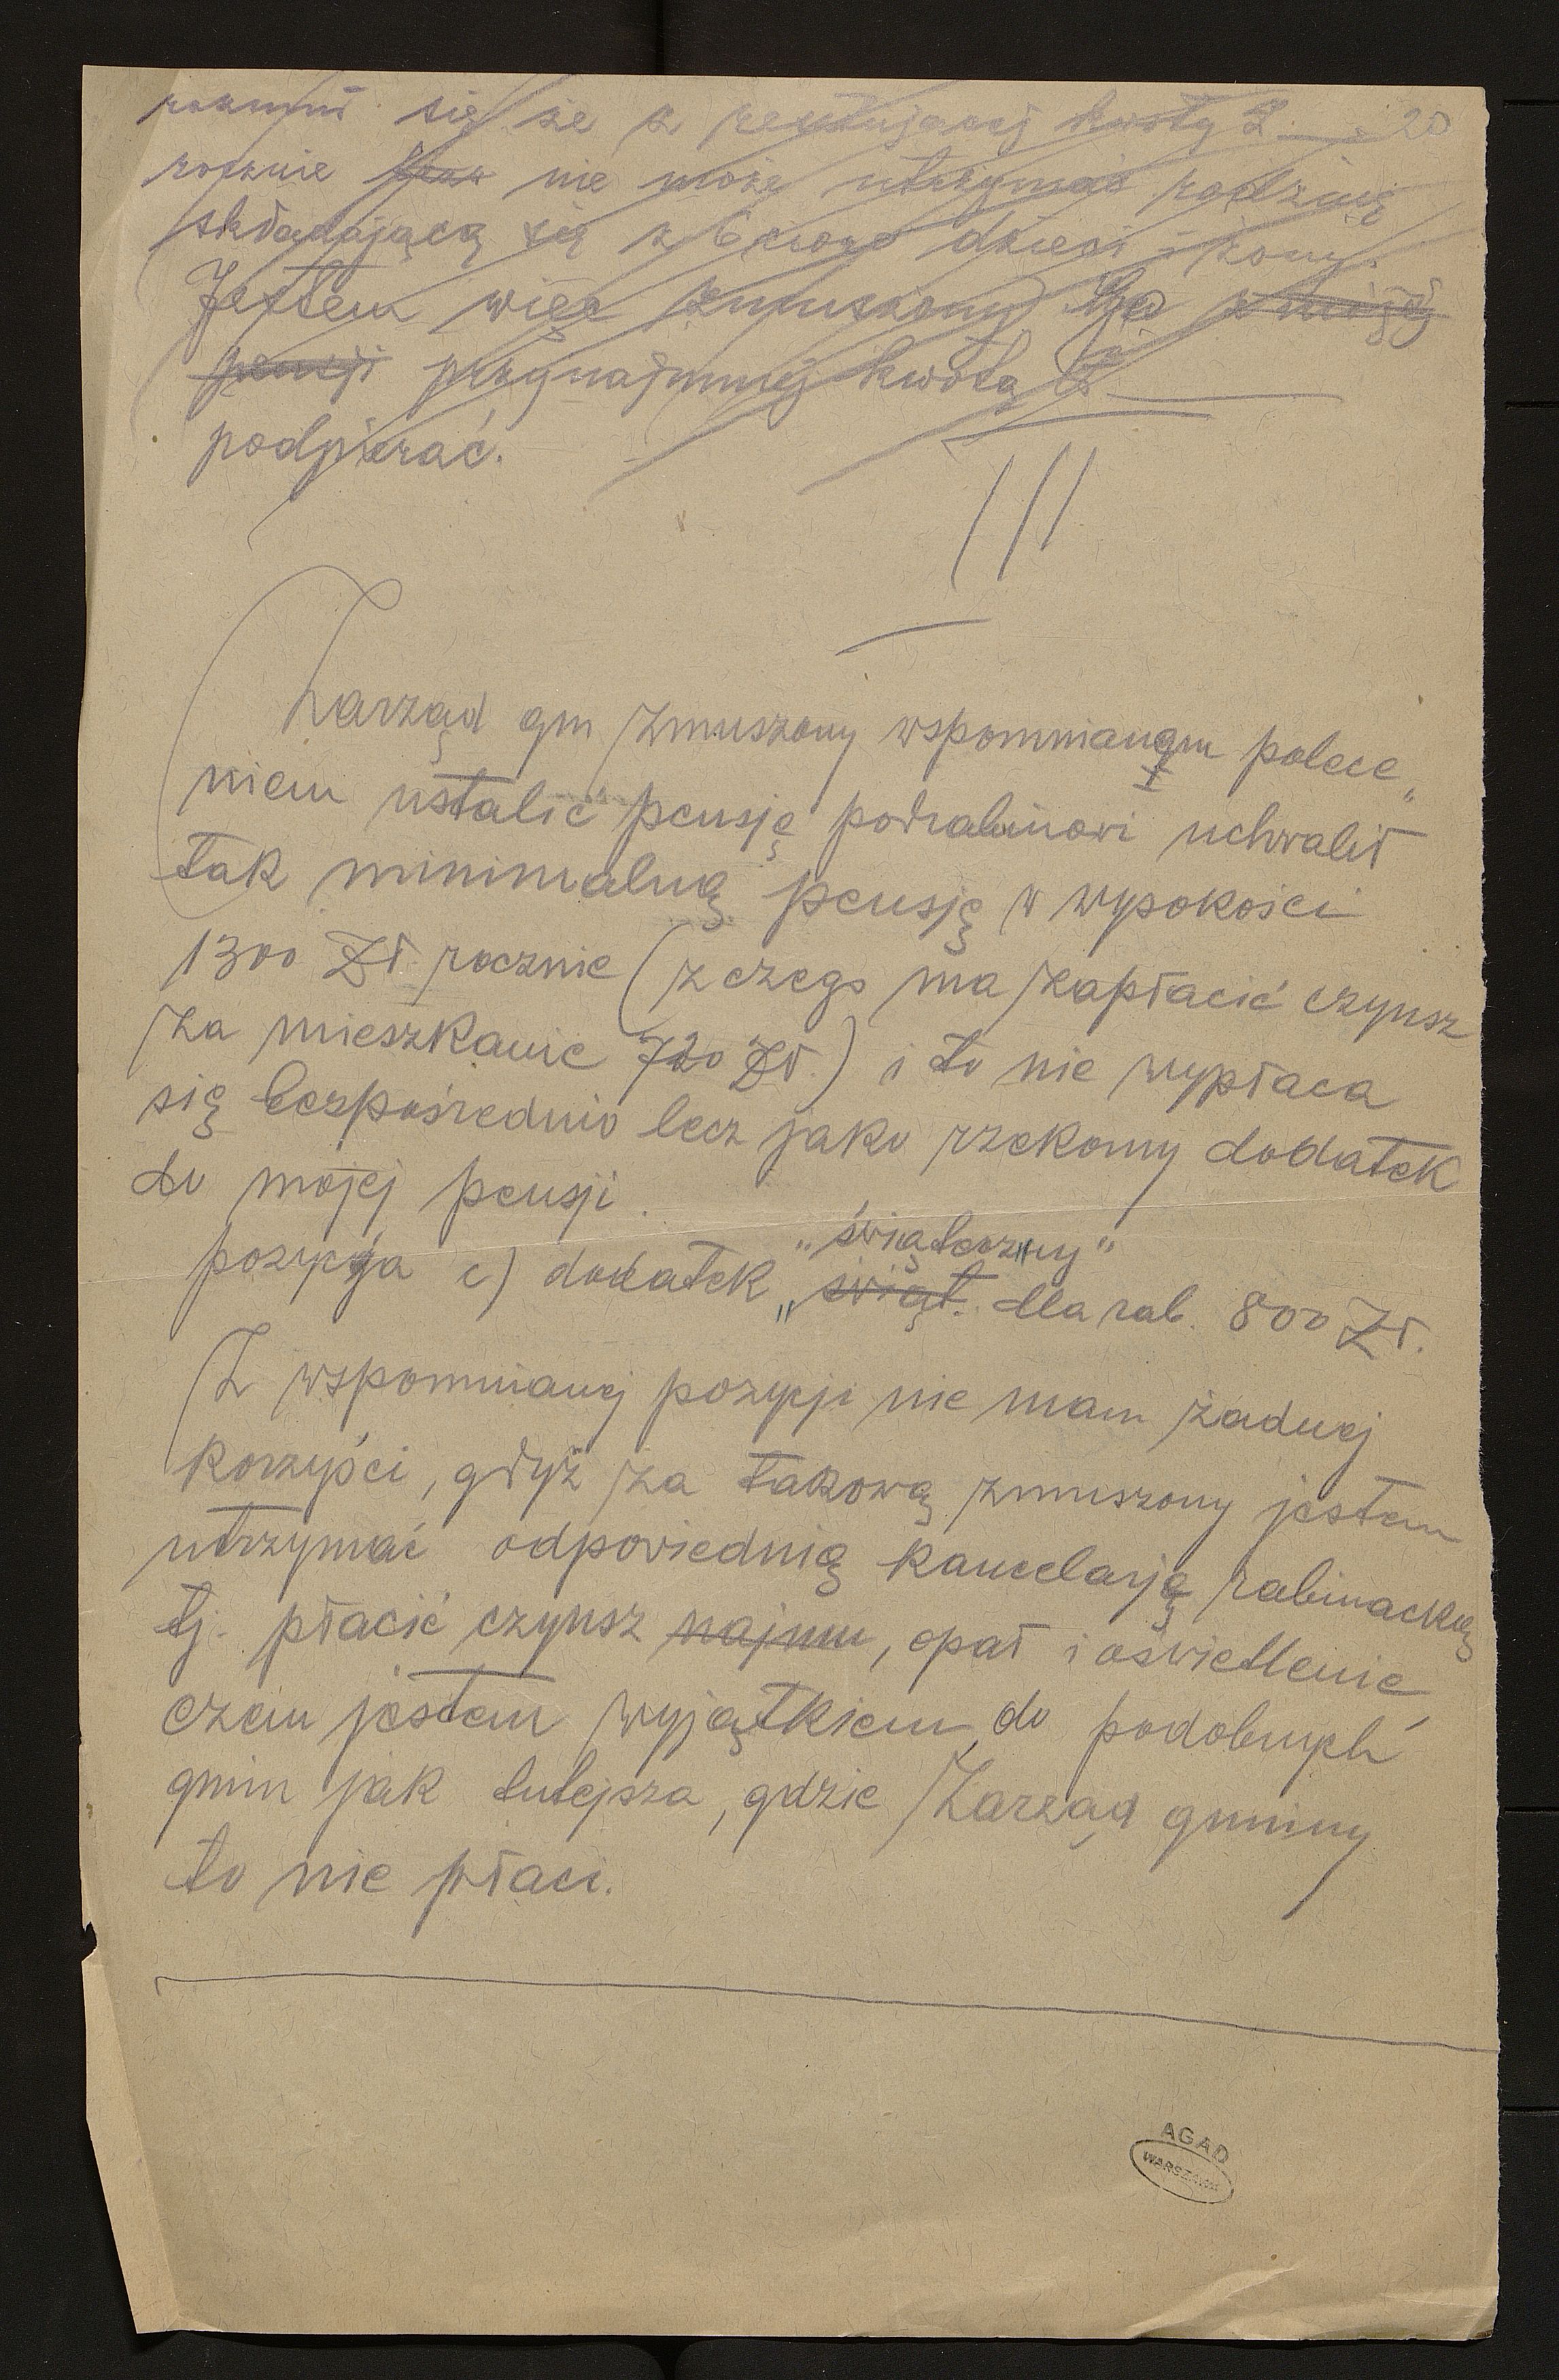 rozumi się że z rezultującej kwoty Z 20
rocznie nie może utrzymać rodzinę
składającą się z 6ciorga dzieci i żony.
Jestem więc zmuszony go
pensji przynajmniej kwotą Z
podpierać.
III
Zarząd gm zmuszony wspomnianym polece„
niem ustalić pensję podrabinowi uchwalił
tak minimalną pensję w wysokości
1300 Zł rocznie (z czego ma zapłacić czynsz
za mieszkanie 720 Zł.) i to nie wypłaca
się bezpośrednio lecz jako rzekomy dodatek
do mojej pensji.
„świąteczny”
pozycja c) dodatek „świąt. dla rab. 800 Zł.
Z wspomnianej pozycji nie mam żadnej
korzyści, gdyż za takową zmuszony jestem
utrzymać odpowiednią kancelarję rabinacką
tj. płacić czynsz najmu, opał i oświetlenie,
czem jestem wyjątkiem do podobnych
gmin jak tutejsza, gdzie Zarząd gminy
to nie płaci.
AGAD
WARSZAWA